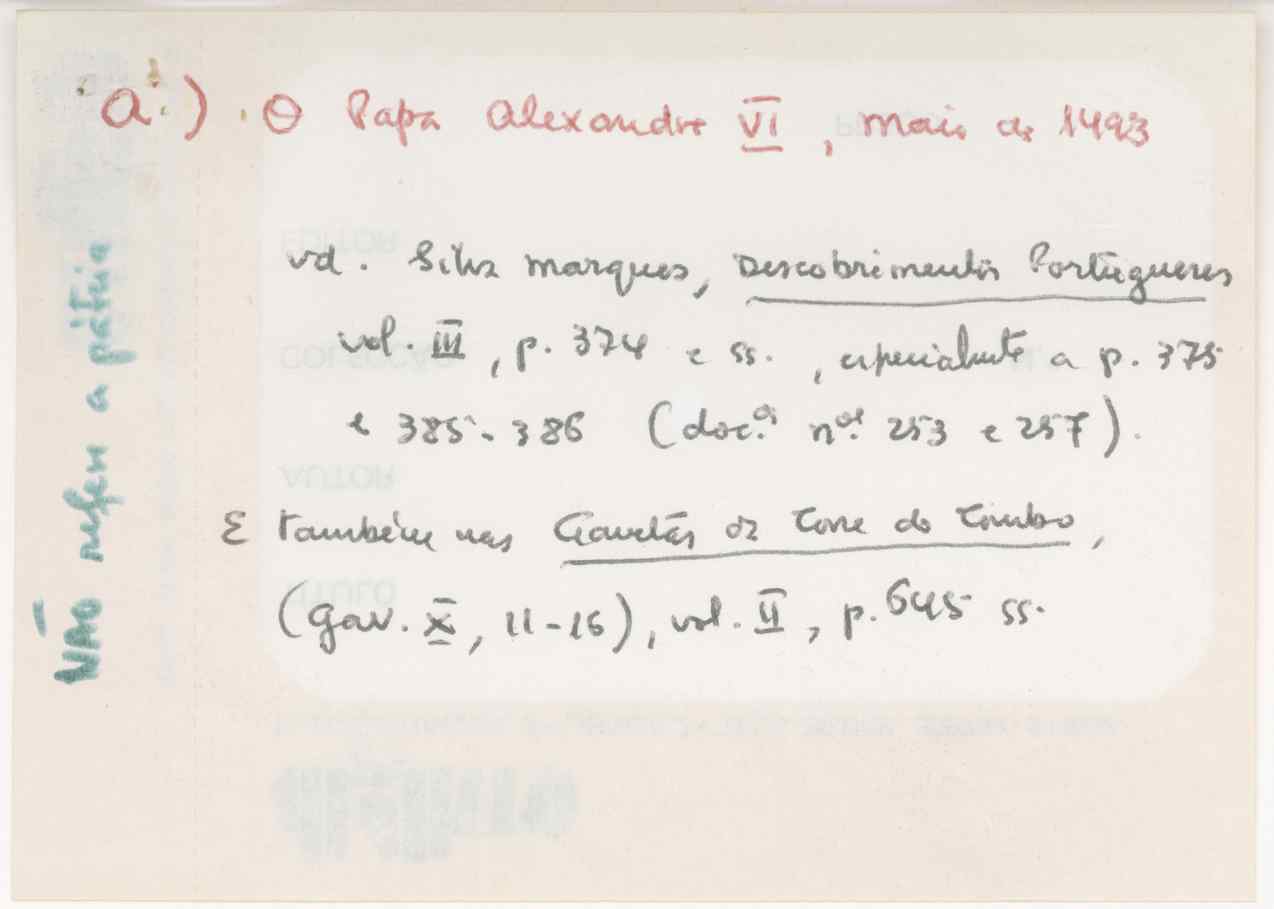 a.) . O Papa Alexandre VI, Maio de 1493
vd. Silva Marques, Descobrimentos Portugueses
vol. III, p. 374 e ss., especialmente a p. 375
e 385-386 (doc.os nos. 253 e 257).
E também nas Gavetas da Torre do Tombo,
(Gav. X, 11-16), vol. II, p. 645 ss.
NÃO refere a pátria
EDITOR
COLECÇÃO
AUTOR
TÍTULO